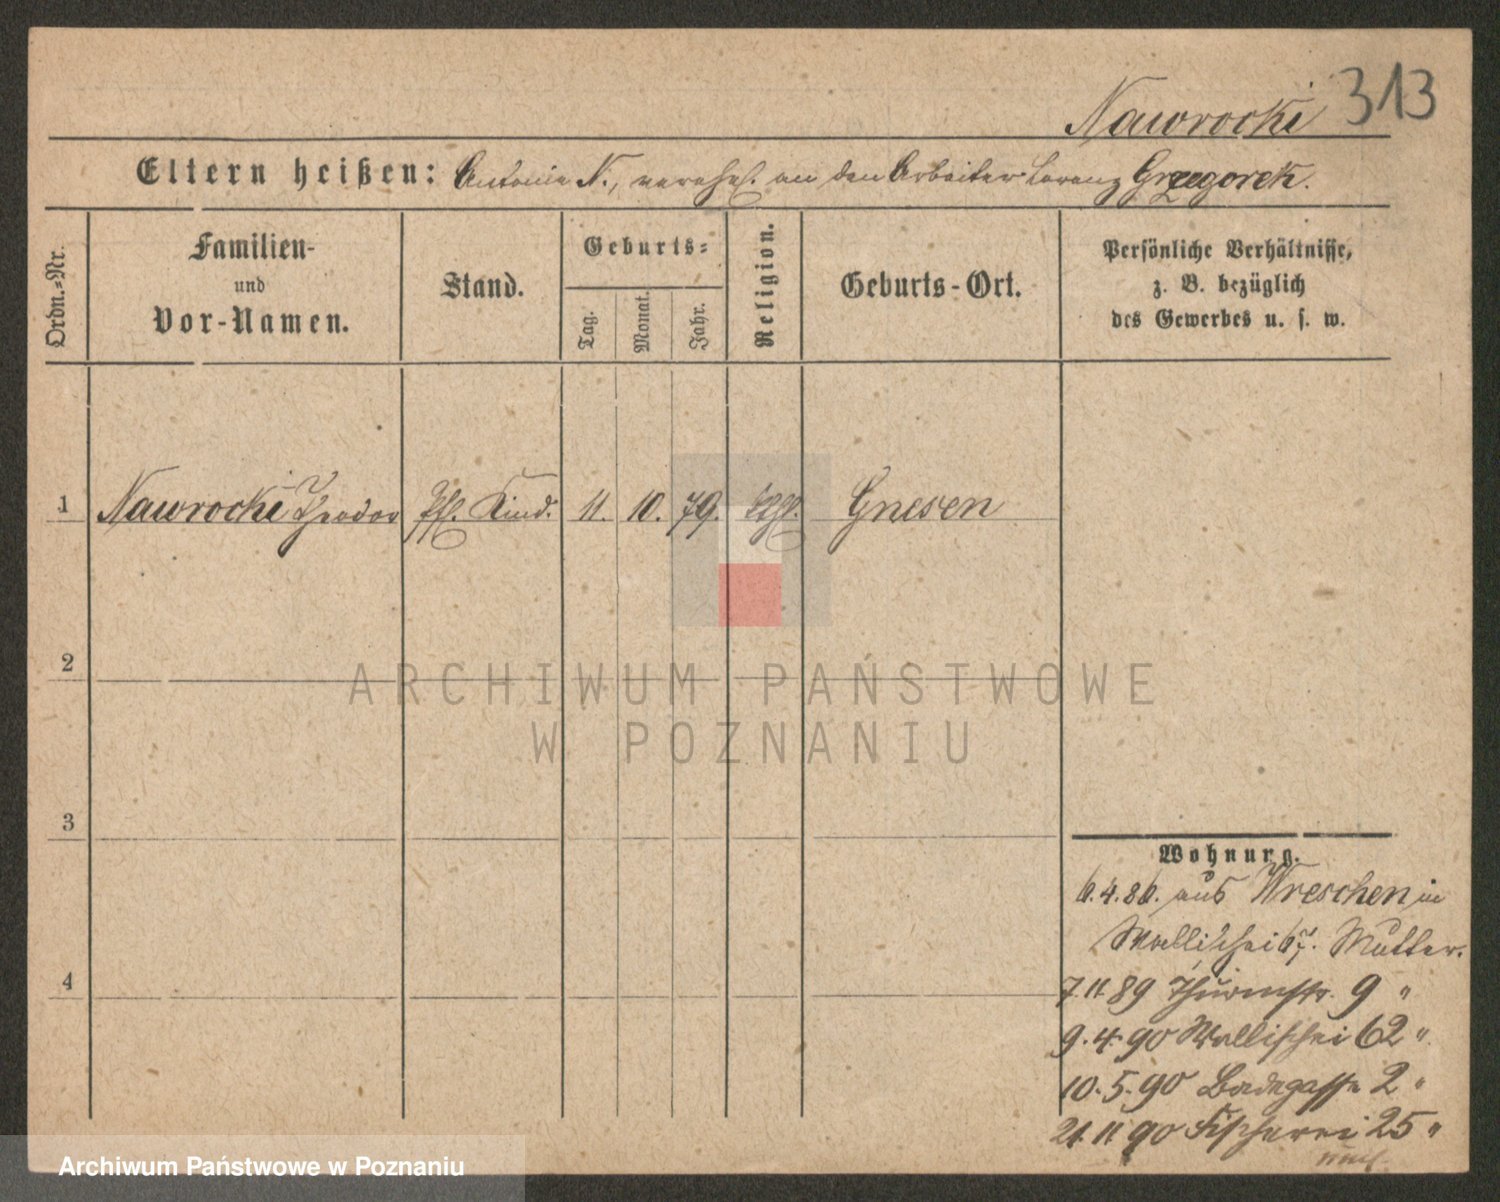 Nawrocki 313
Eltern heißen: Antonie N., verehel. an den Arbeiter Lorenz Grzegorek.
Ordn.-Nr.
Familien-
und
Vor-Namen.
Stand.
Geburts-
Tag.
Monat.
Jahr.
Religion.
Geburts-Ort.
Persönliche Verhältnisse,
z. B. bezüglich
des Gewerbes u. s. w.
1 Nawrocki Theodor Pfl. Kind. 11. 10. 79. kthl. Gnesen
2
3
4
Wohnung.
6.4.86. aus Wreschen in
Wallischei 67. Mutter.
7.11.89 Thurmstr. 9 "
9.4.90 Wallischei 62 "
10.5.90 Badegasse 2 "
21.11.90 Fischerei 25 "
ARCHIWUM PAŃSTWOWE
W POZNANIU
Archiwum Państwowe w Poznaniu